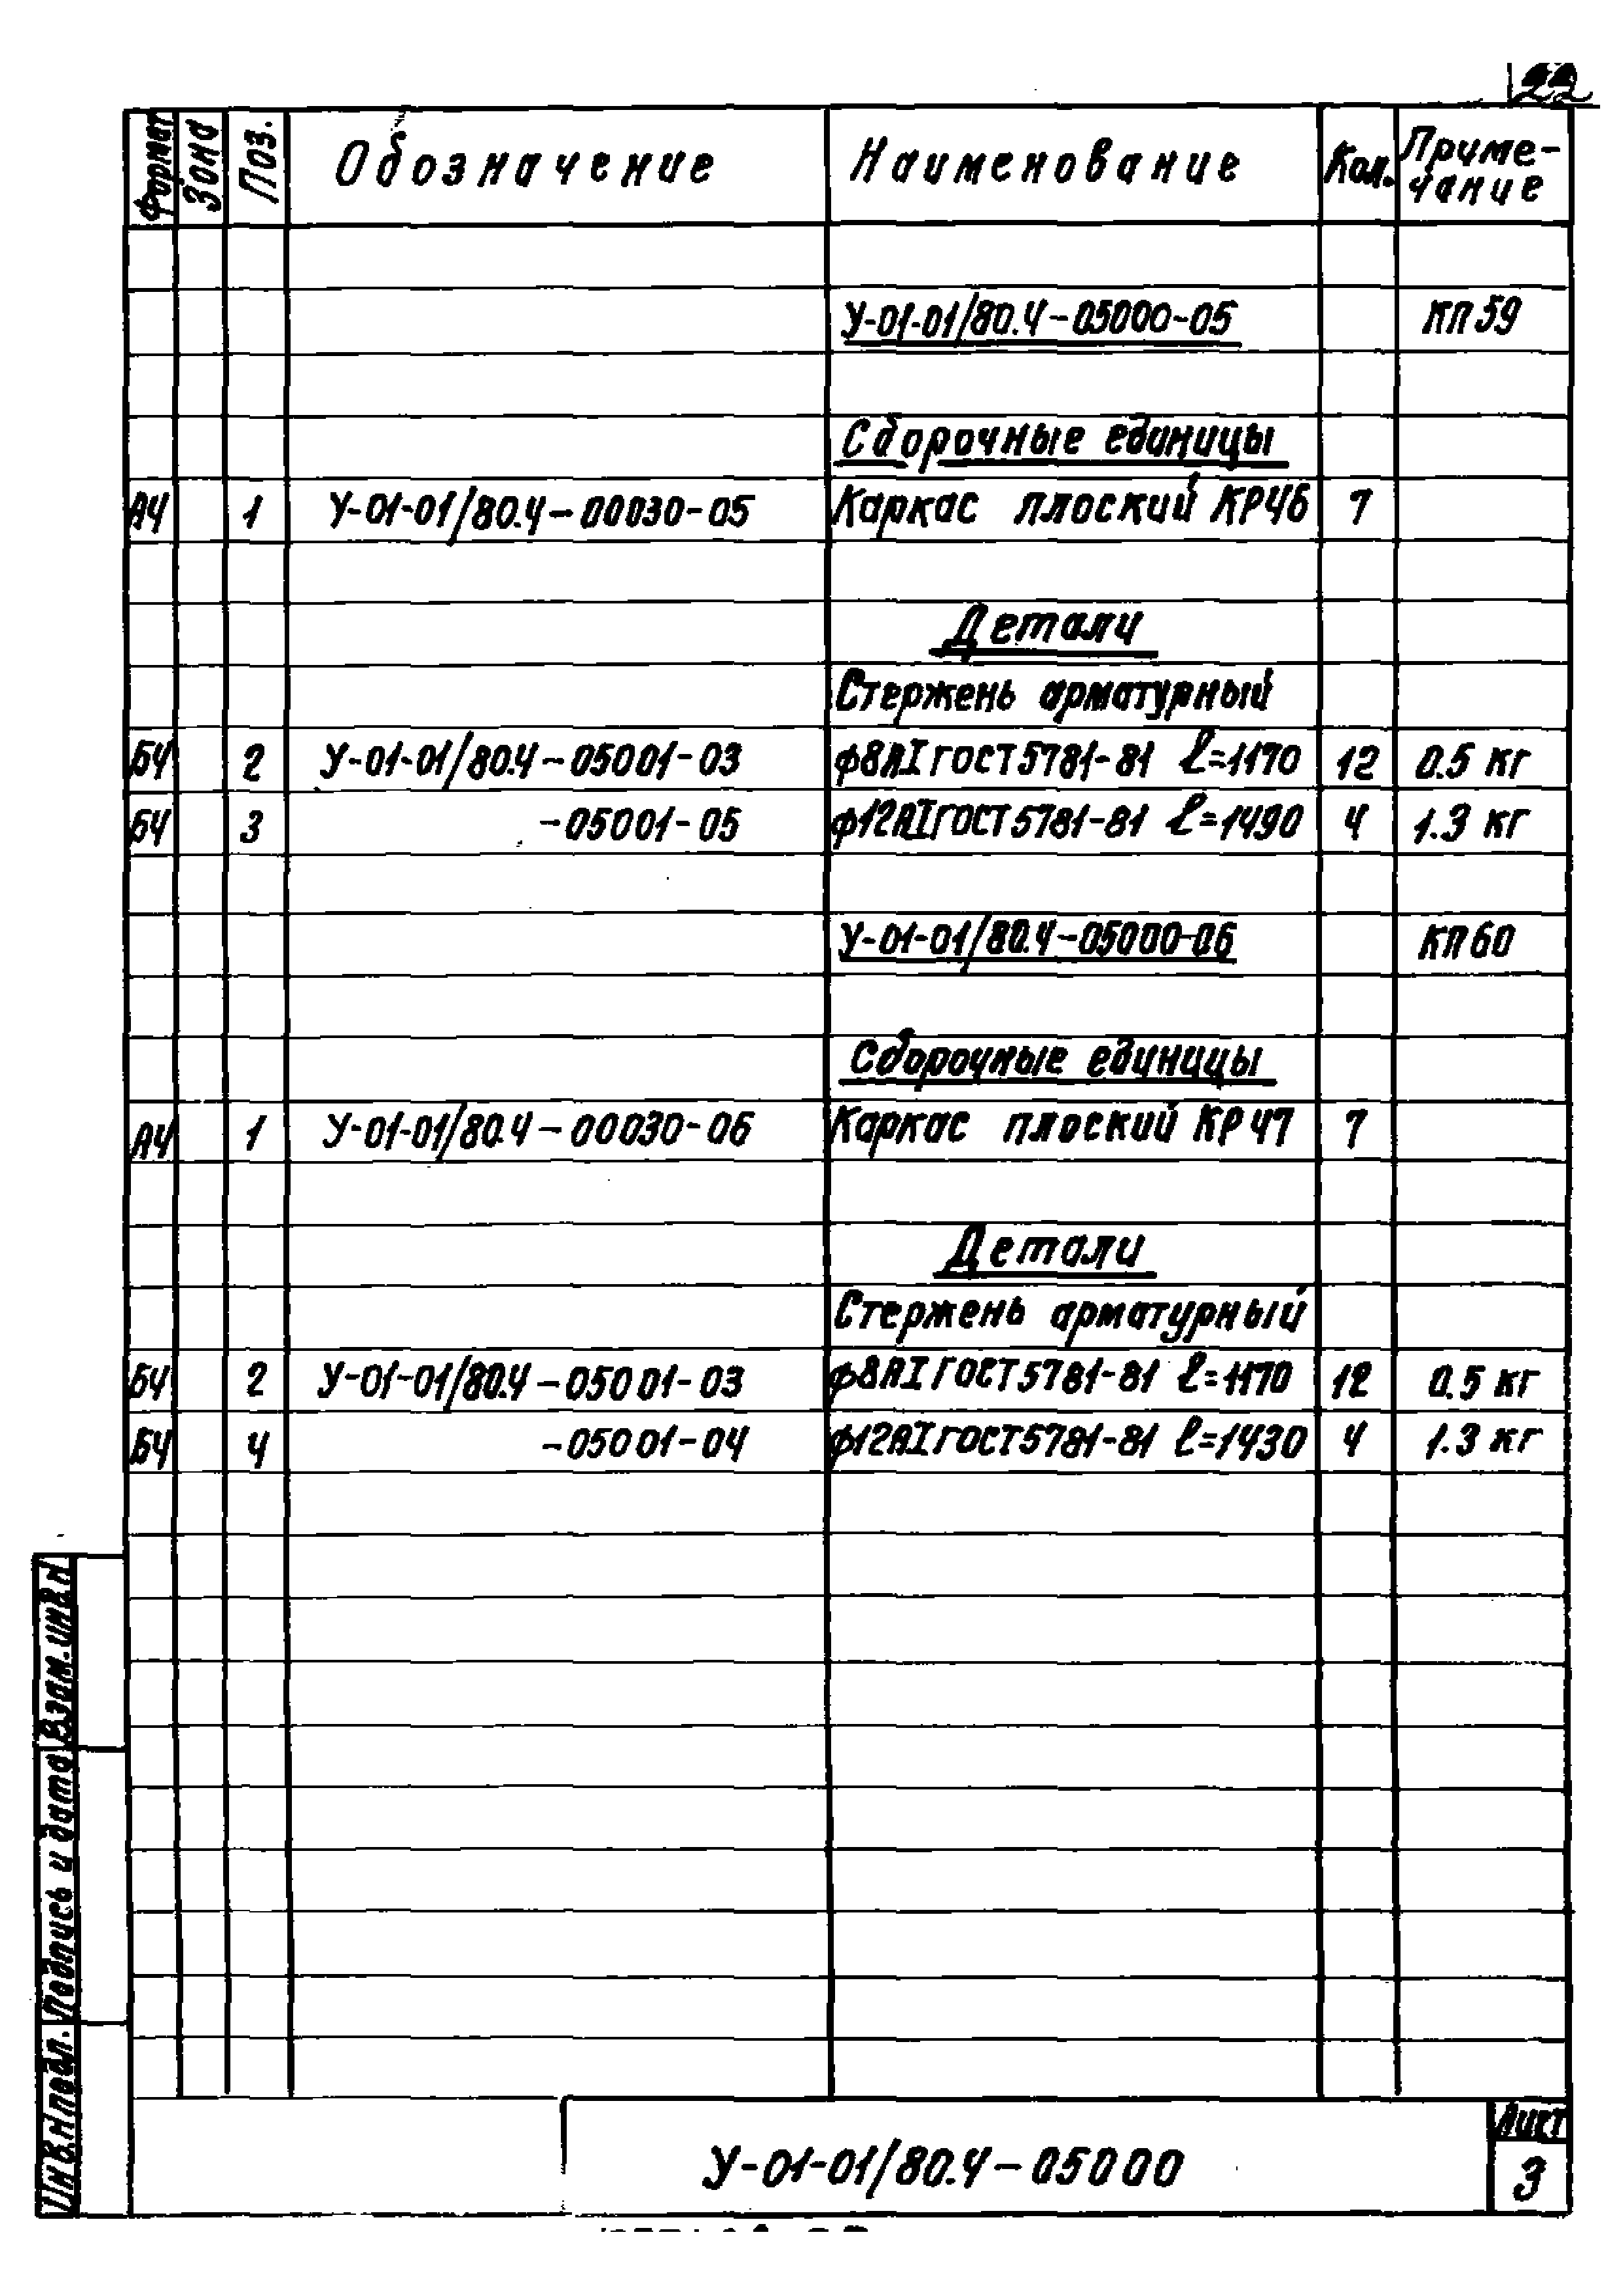 22
Формат Зона Поз. Обозначение Наименование Кол. Приме-
чание
У-01-01/80.4-05000-05 КП59
Сборочные единицы
А4 1 У-01-01/80.4-00030-05 Каркас плоский КР46 7
Детали
Стержень арматурный
БЧ 2 У-01-01/80.4-05001-03 ф8АI ГОСТ 5781-81 ℓ=1170 12 0.5 кг
БЧ 3 -05001-05 ф12АI ГОСТ 5781-81 ℓ=1490 4 1.3 кг
У-01-01/80.4-05000-06 КП60
Сборочные единицы
А4 1 У-01-01/80.4-00030-06 Каркас плоский КР47 7
Детали
Стержень арматурный
БЧ 2 У-01-01/80.4-05001-03 ф8АI ГОСТ 5781-81 ℓ=1170 12 0.5 кг
БЧ 4 -05001-04 ф12АI ГОСТ 5781-81 ℓ=1430 4 1.3 кг
Взам. инв N
Подпись и дата
Инв. N подл.
У-01-01/80.4-05000
Лист
3